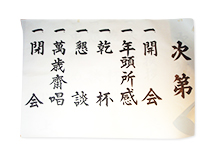 次第
一開会
一年頭所感
一乾杯
一懇談
一萬歳齊唱
一閉会